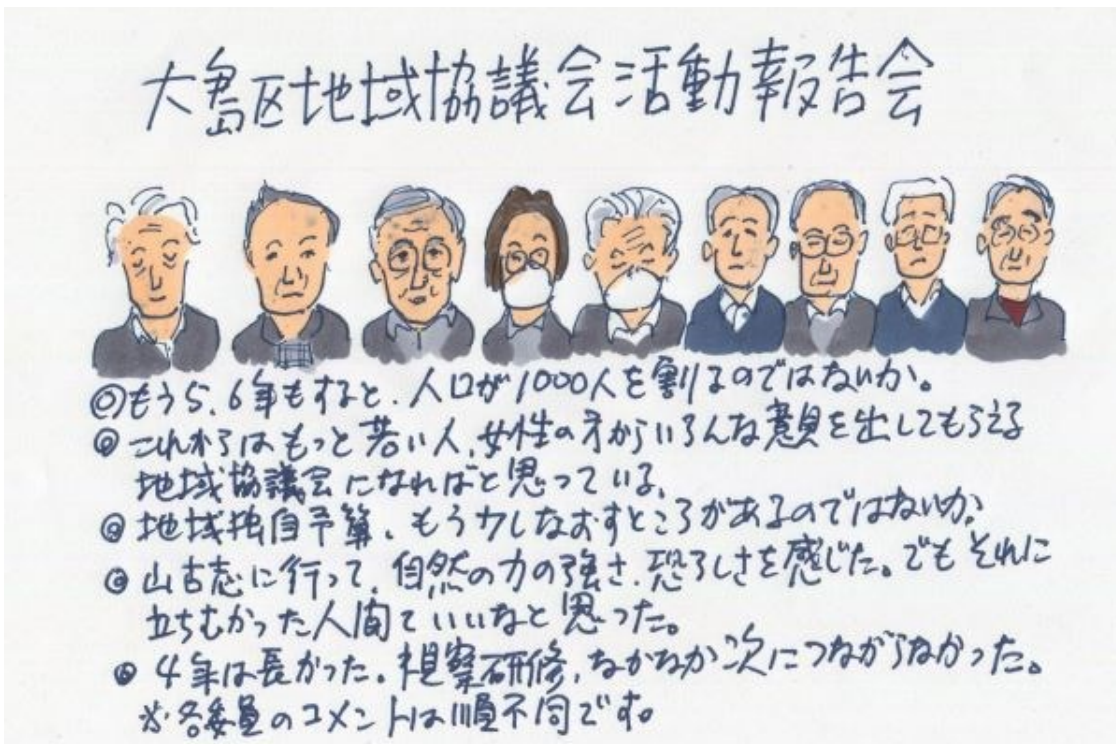 大島区地域協議会活動報告会
◎もう5、6年もすると、人口が1000人を割るのではないか。
◎これからはもっと若い人、女性の方からいろんな意見を出してもらえる
地域協議会になればと思っている。
◎地域独自予算、もう少しなおすところがあるのではないか。
◎山古志に行って、自然の力の強さ、恐ろしさを感じた。でもそれに
立ちむかった人間ていいなと思った。
◎4年は長かった。視察研修、なかなか次につながらなかった。
※各委員のコメントは順不同です。